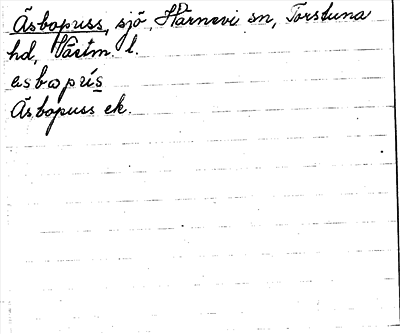 Åsbopuss, sjö, Härnevi sn, Torstuna
hd, Västm. l.
Åsbopuss ek.